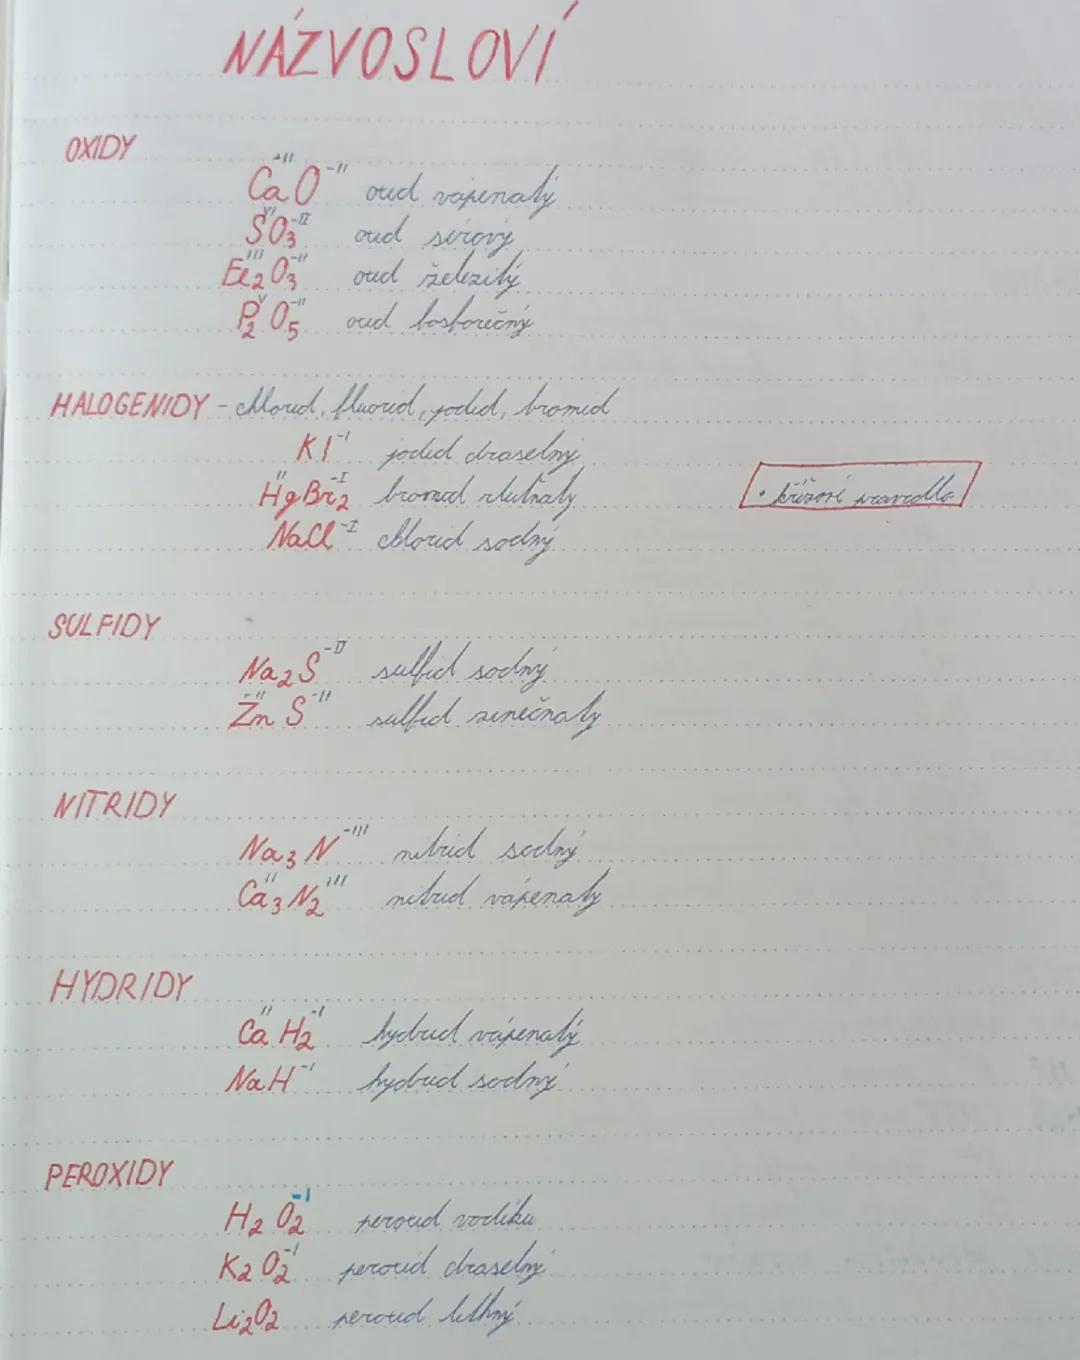 NÁZVOSLOVÍ
OXIDY
Ca⁺ᴵᴵ O⁻ᴵᴵ oxid vápenatý
Sⱽᴵ O₃⁻ᴵᴵ oxid sírový
Feᴵᴵᴵ₂ O₃⁻ᴵᴵ oxid železitý
Pⱽ₂ O₅⁻ᴵᴵ oxid fosforečný
HALOGENIDY - chlorid, fluorid, jodid, bromid
KI⁻ᴵ jodid draselný
Hgᴵᴵ Br₂⁻ᴵ bromid rtuťnatý
• křížové pravidlo
NaCl⁻ᴵ chlorid sodný
SULFIDY
Na₂S⁻ᴵᴵ sulfid sodný
Zn⁺ᴵᴵ S⁻ᴵᴵ sulfid zinečnatý
NITRIDY
Na₃N⁻ᴵᴵᴵ nitrid sodný
Caᴵᴵ₃ N₂⁻ᴵᴵᴵ nitrid vápenatý
HYDRIDY
Caᴵᴵ H₂⁻ᴵ hydrid vápenatý
NaH⁻ᴵ hydrid sodný
PEROXIDY
H₂ O₂⁻ᴵ peroxid vodíku
K₂ O₂⁻ᴵ peroxid draselný
Li₂O₂ peroxid lithný